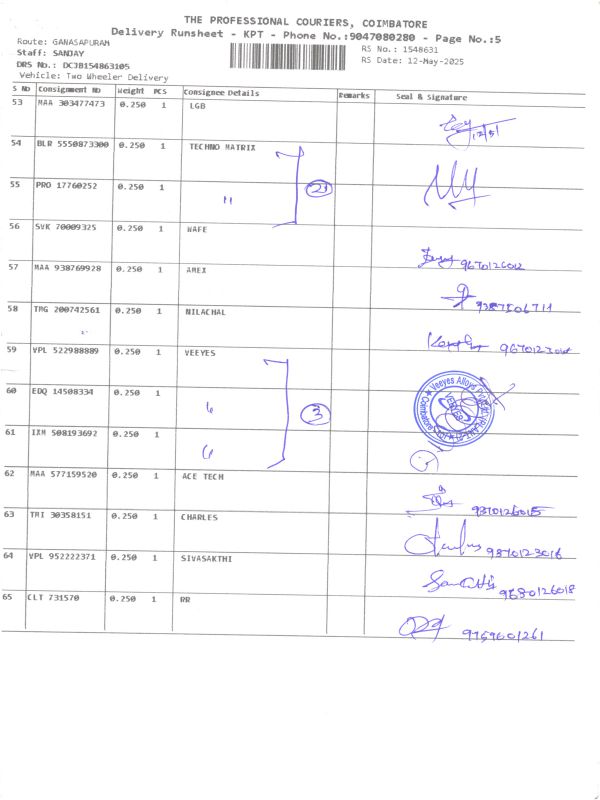 THE PROFESSIONAL COURIERS, COIMBATORE
Delivery Runsheet - KPT - Phone No.:9047080280 - Page No.:5
Route: GANASAPURAM
RS No.: 1548631
Staff: SANJAY
RS Date: 12-May-2025
DRS No.: DCJB154863105
Vehicle: Two Wheeler Delivery
S No Consignment No Weight PCS Consignee Details Remarks Seal & Signature
53 MAA 303477473 0.250 1 LGB
12/5/
54 BLR 5550873300 0.250 1 TECHNO MATRIX
55 PRO 17760252 0.250 1 "
56 SVK 70009325 0.250 1 WAFE
9670126012
57 MAA 938769928 0.250 1 AMEX
9387506711
58 TMG 200742561 0.250 1 NILACHAL
59 VPL 522988889 0.250 1 VEEYES
60 EDQ 14508334 0.250 1
3
Veeyes Alloys
61 IXM 508193692 0.250 1
62 MAA 577159520 0.250 1 ACE TECH
9370126015
63 TRI 30358151 0.250 1 CHARLES
9870123016
64 VPL 952222371 0.250 1 SIVASAKTHI
9680126018
65 CLT 731570 0.250 1 RR
9159601261